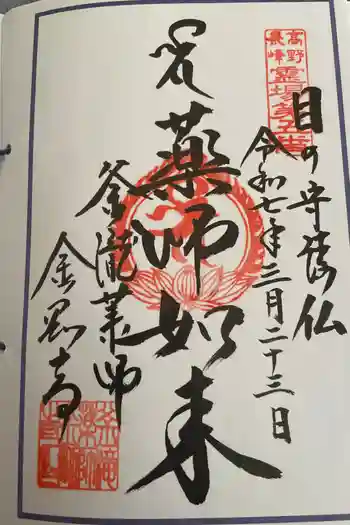 高野
長峰
霊場第五番
目の守護仏
令和七年三月二十三日
薬師如来
釜瀧薬師
金剛寺